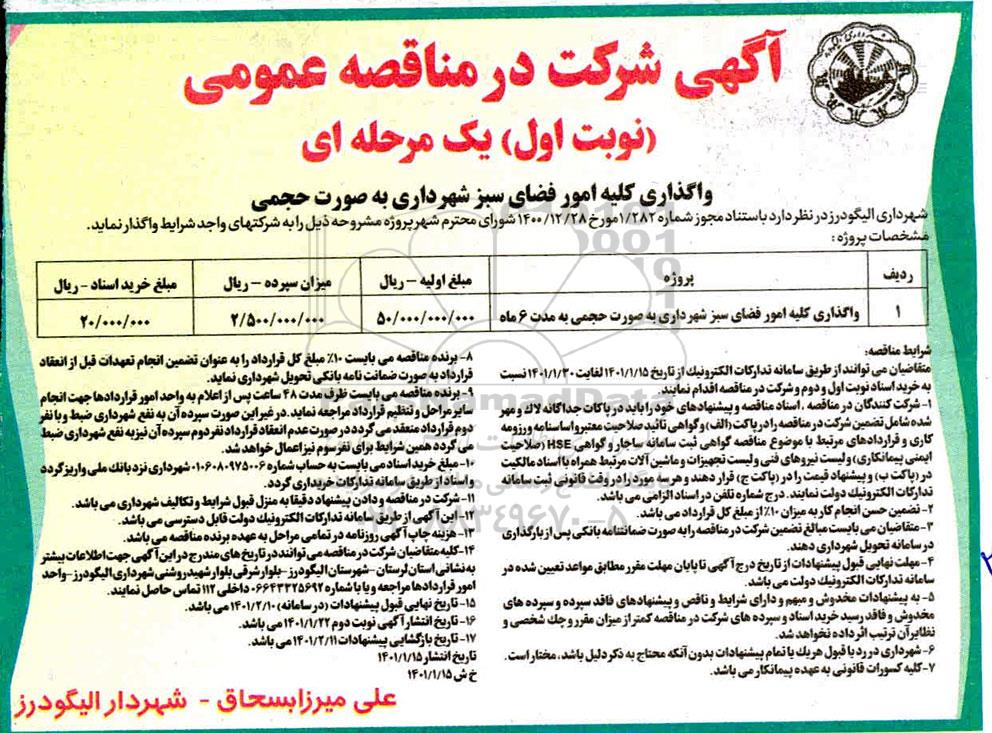 آگهی شرکت در مناقصه عمومی
(نوبت اول) یک مرحله ای
واگذاری کلیه امور فضای سبز شهرداری به صورت حجمی
شهرداری الیگودرز در نظر دارد باستناد مجوز شماره ۱/۲۸۲ مورخ ۱۴۰۰/۱۲/۲۸ شورای محترم شهر پروژه مشروحه ذیل را به شرکتهای واجد شرایط واگذار نماید.
مشخصات پروژه :
ردیف پروژه مبلغ اولیه – ریال میزان سپرده – ریال مبلغ خرید اسناد – ریال
۱ واگذاری کلیه امور فضای سبز شهرداری به صورت حجمی به مدت ۶ ماه ۵۰/۰۰۰/۰۰۰/۰۰۰ ۲/۵۰۰/۰۰۰/۰۰۰ ۲۰/۰۰۰/۰۰۰
شرایط مناقصه:
متقاضیان می توانند از طریق سامانه تدارکات الکترونیک از تاریخ ۱۴۰۱/۱/۱۵ لغایت ۱۴۰۱/۱/۳۰ نسبت
به خرید اسناد نوبت اول و دوم و شرکت در مناقصه اقدام نمایند.
۱- شرکت کنندگان در مناقصه ، اسناد مناقصه و پیشنهادهای خود را باید در پاکات جداگانه لاک و مهر
شده شامل تضمین شرکت در مناقصه را در پاکت (الف) و گواهی تائید صلاحیت معتبر و اساسنامه و رزومه
کاری و قراردادهای مرتبط با موضوع مناقصه گواهی ثبت سامانه ساجار و گواهی HSE (صلاحیت
ایمنی پیمانکاری) و لیست نیروهای فنی و لیست تجهیزات و ماشین آلات مرتبط همراه با اسناد مالکیت
در (پاکت ب) و پیشنهاد قیمت را در (پاکت ج) قرار دهند و هر سه مورد را در وقت قانونی ثبت سامانه
تدارکات الکترونیک دولت نمایند. درج شماره تلفن در اسناد الزامی می باشد.
۲- تضمین حسن انجام کار به میزان ۱۰٪ از مبلغ کل قرارداد می باشد.
۳- متقاضیان می بایست مبالغ تضمین شرکت در مناقصه را به صورت ضمانتنامه بانکی پس از بارگذاری
در سامانه تحویل شهرداری دهند.
۴- مهلت نهایی قبول پیشنهادات از تاریخ درج آگهی تا پایان مهلت مقرر مطابق مواعد تعیین شده در
سامانه تدارکات الکترونیک دولت می باشد.
۵- به پیشنهادات مخدوش و مبهم و دارای شرایط و ناقص و پیشنهادهای فاقد سپرده و سپرده های
مخدوش و فاقد رسید خرید اسناد و سپرده های شرکت در مناقصه کمتر از میزان مقرر و چک شخصی و
نظایر آن ترتیب اثر داده نخواهد شد.
۶- شهرداری در رد یا قبول هریک یا تمام پیشنهادات بدون آنکه محتاج به ذکر دلیل باشد، مختار است.
۷- کلیه کسورات قانونی به عهده پیمانکار می باشد.
۸- برنده مناقصه می بایست ۱۰٪ مبلغ کل قرارداد را به عنوان تضمین انجام تعهدات قبل از انعقاد
قرارداد به صورت ضمانت نامه بانکی تحویل شهرداری نماید.
۹- برنده مناقصه می بایست ظرف مدت ۴۸ ساعت پس از اعلام به واحد امور قراردادها جهت انجام
سایر مراحل و تنظیم قرارداد مراجعه نماید. در غیر این صورت سپرده آن به نفع شهرداری ضبط و با نفر
دوم قرارداد منعقد می گردد در صورت عدم انعقاد قرارداد نفر دوم سپرده آن نیز به نفع شهرداری ضبط
می گردد همین شرایط برای نفر سوم نیز اعمال خواهد شد.
۱۰- مبلغ خرید اسناد می بایست به حساب شماره ۰۱۰۶۰۸۰۹۷۵۰۰۶ شهرداری نزد بانک ملی واریز گردد
و اسناد از طریق سامانه تدارکات خریداری گردد.
۱۱- شرکت در مناقصه و دادن پیشنهاد دقیقا به منزل قبول شرایط و تکالیف شهرداری می باشد.
۱۲- این آگهی از طریق سامانه تدارکات الکترونیک دولت قابل دسترسی می باشد.
۱۳- هزینه چاپ آگهی روزنامه در تمامی مراحل به عهده برنده مناقصه می باشد.
۱۴- کلیه متقاضیان شرکت در مناقصه می توانند در تاریخ های مندرج در این آگهی جهت اطلاعات بیشتر
به نشانی استان لرستان – شهرستان الیگودرز – بلوار شرقی بلوار شهید روشنی شهرداری الیگودرز – واحد
امور قراردادها مراجعه و یا با شماره ۰۶۶۴۳۳۲۵۶۹۲ داخلی ۱۱۲ تماس حاصل نمایند.
۱۵- تاریخ نهایی قبول پیشنهادات (در سامانه) ۱۴۰۱/۲/۱۰ می باشد.
۱۶- تاریخ انتشار آگهی نوبت دوم ۱۴۰۱/۱/۲۲ می باشد.
۱۷- تاریخ بازگشایی پیشنهادات ۱۴۰۱/۲/۱۱ می باشد.
تاریخ انتشار ۱۴۰۱/۱/۱۵
خ ش ۱۴۰۱/۱/۱۵
علی میرزابسحاق – شهردار الیگودرز